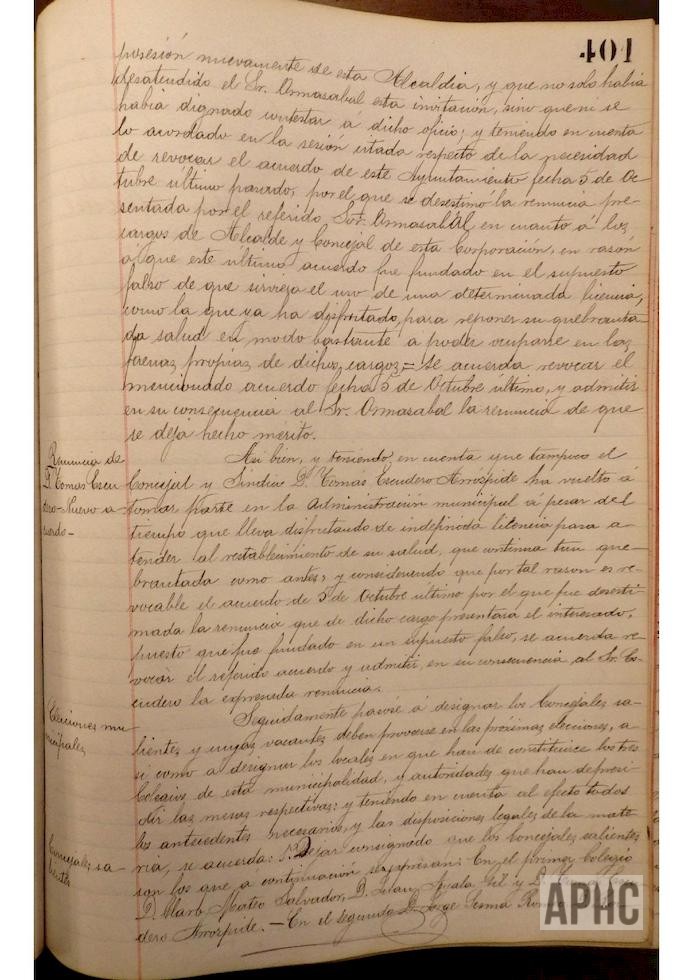 401
posesión nuevamente de esta Alcaldia, y que no solo habia
desatendido el Sr. Ormasabal esta invitación, sino que ni se
habia dignado contestar á dicho oficio; y teniendo en cuenta
lo acordado en la sesión citada respecto de la necesidad
de revocar el acuerdo de este Ayuntamiento fecha 5 de Oc-
tubre último pasado, por el que se desestimó la renuncia pre-
sentada por el referido Sor. Ormasabal en cuanto á los
cargos de Alcalde y Concejal de esta Corporación, en razón
á que este último acuerdo fue fundado en el supuesto
falso de que sirviera el uso de una determinada licencia,
como la que ya ha disfrutado, para reponer su quebranta-
da salud en modo bastante á poder ocuparse en las
faenas propias de dichos cargos,= Se acuerda revocar el
mencionado acuerdo fecha 5 de Octubre último, y admitir
en su consecuencia al Sr. Ormasabal la renuncia de que
se deja hecho mérito.
Renuncia de
D. Tomás Escu
dero- Nuevo a-
cuerdo-
Asi bien, y teniendo en cuenta que tampoco el
Concejal y Sindico D. Tomás Escudero Arróspide ha vuelto á
tomar parte en la administración municipal á pesar del
tiempo que lleva disfrutando de indefinida licencia para a-
tender al restablecimiento de su salud, que continua tan que-
brantada como antes; y considerando que por tal razon es re-
vocable el acuerdo de 5 de Octubre último por el que fue desesti-
mada la renuncia que de dicho cargo presentara el interesado,
puesto que fue fundado en un supuesto falso, se acuerda re-
vocar el referido acuerdo y admitir, en su consecuencia, al Sr. Es-
cudero la expresada renuncia.
Elecciones mu-
nicipales
Seguidamente pasose á designar los Concejales sa-
lientes y cuyas vacantes deben proveerse en las próximas elecciones, a-
si como a designar los locales en que han de constituirse los tres
Colegios de esta municipalidad, y autoridades que han de presi-
dir las mesas respectivas: y teniendo en cuenta al efecto todos
los antecedentes necesarios, y las disposiciones legales de la mate-
Concejales sa-
lientes
ria, se acuerda: Dejar consignado que los Concejales salientes
son los que á continuación se expresan: En el primer Colegio
D. Claro Mateo Salvador, D. Juan Ayala Gil y D.
dero Arrospide. — En el segundo D. Jorge Lerma
APHC